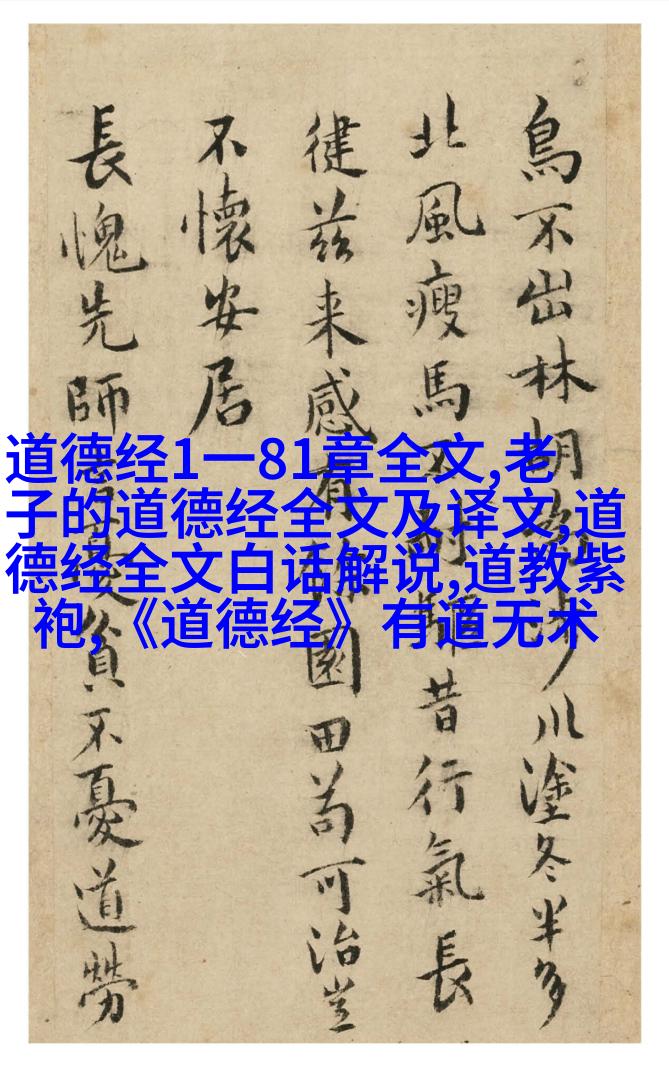 鳥不出林胡川塗冬半多
北風瘦馬不昔行氣長
徤茲来感有園田苟可治豈
不懷安居
長愧先師貧不憂道勞
道德经1一81章全文,老
子的道德经全文及译文,道
德经全文白话解说,道教紫
袍,《道德经》有道无术